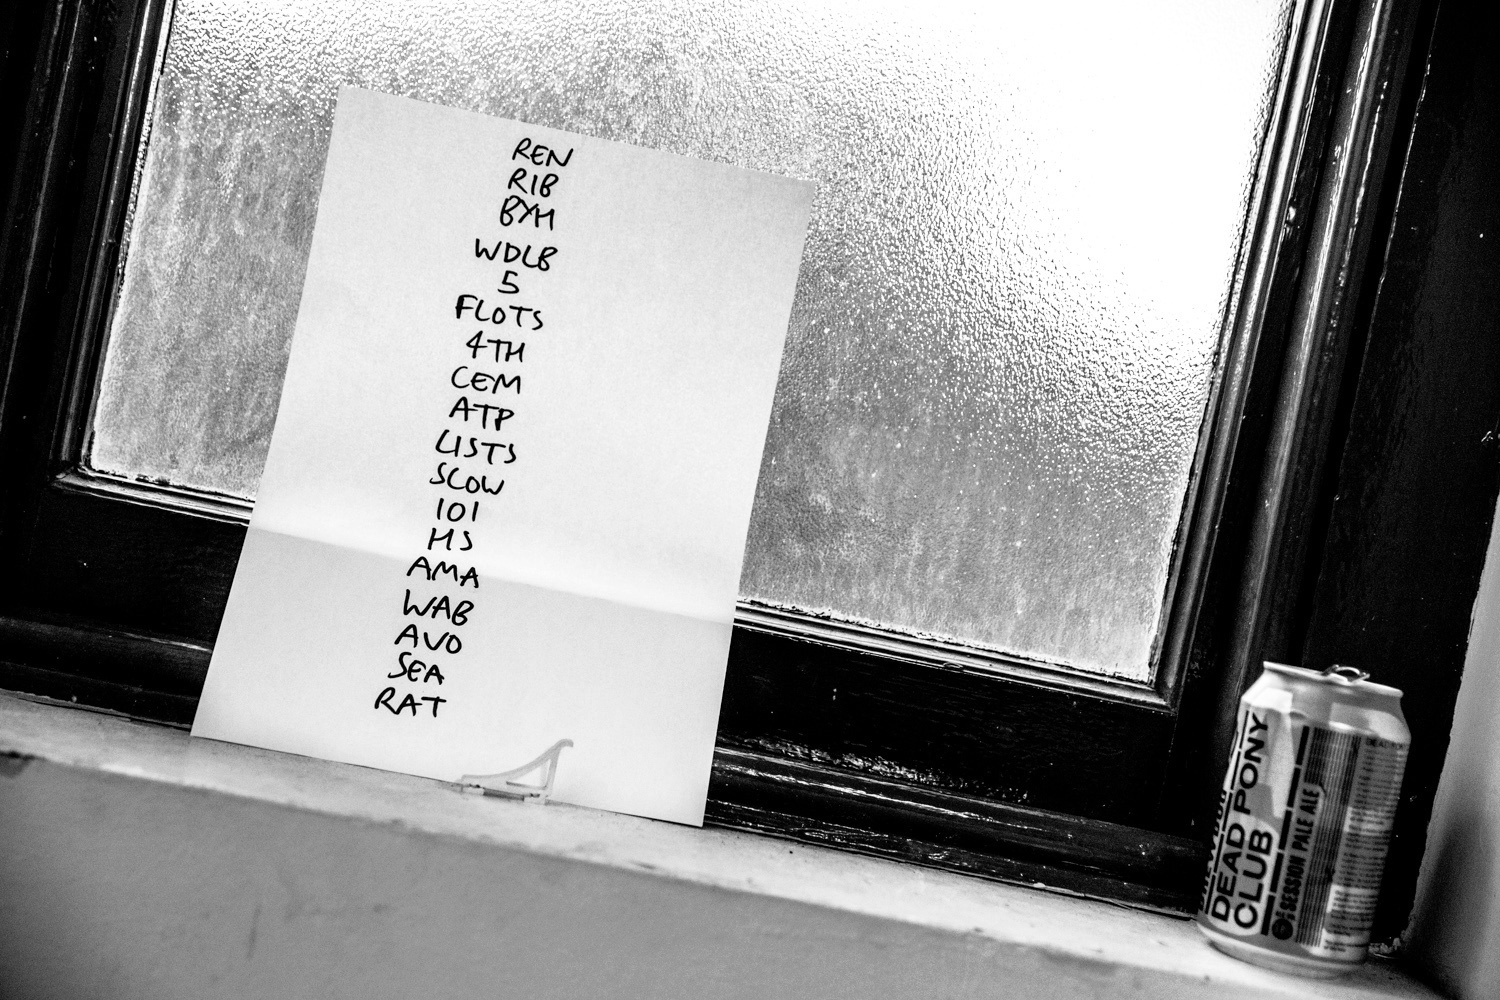 REN
RIB
BYH
WDLB
5
FLOTS
4TH
CEM
ATP
LISTS
SLOW
101
HS
AMA
WAB
AVO
SEA
RAT
BREWDOG
DEAD PONY
CLUB
SESSION PALE ALE